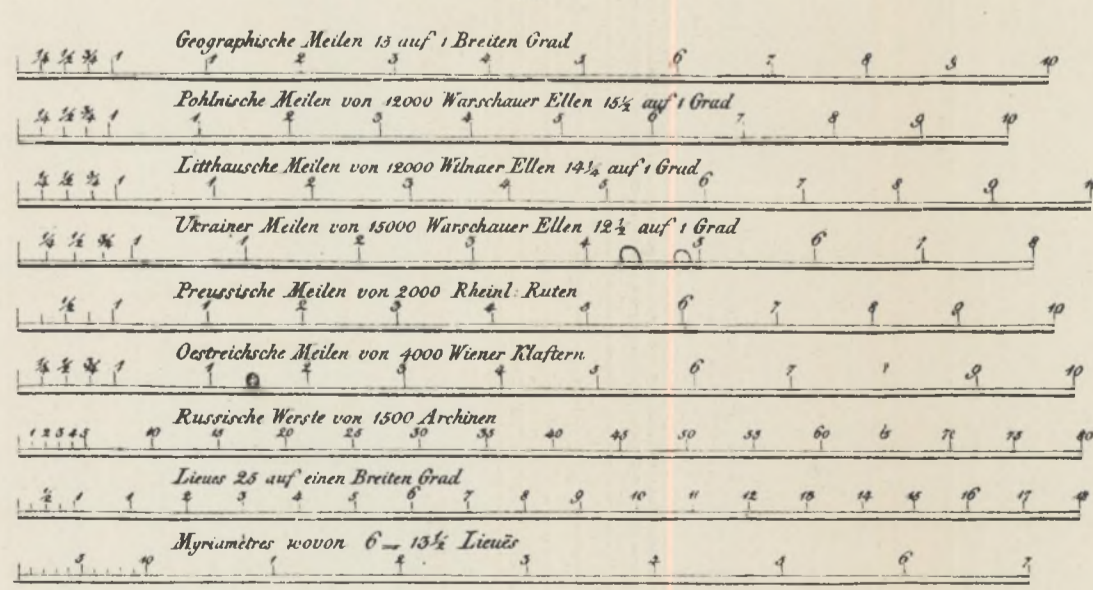 Geographische Meilen 15 auf 1 Breiten Grad
¼ ½ ¾ 1 1 2 3 4 5 6 7 8 9 10
Pohlnische Meilen von 12000 Warschauer Ellen 15½ auf 1 Grad
¼ ½ ¾ 1 1 2 3 4 5 6 7 8 9 10
Litthausche Meilen von 12000 Wilnaer Ellen 14¼ auf 1 Grad
¼ ½ ¾ 1 1 2 3 4 5 6 7 8 9
Ukrainer Meilen von 15000 Warschauer Ellen 12½ auf 1 Grad
¼ ½ ¾ 1 1 2 3 4 5 6 7 8
Preussische Meilen von 2000 Rheinl: Ruten
½ 1 1 2 3 4 5 6 7 8 9 10
Oestreichsche Meilen von 4000 Wiener Klaftern
¼ ½ ¾ 1 1 2 3 4 5 6 7 9 10
Russische Werste von 1500 Archinen
1 2 3 4 5 10 15 20 25 30 35 40 45 50 55 60 65 70 75 80
Lieues 25 auf einen Breiten Grad
½ 1 1 2 3 4 5 6 7 8 9 10 11 12 13 14 15 16 17 18
Myriamètres wovon 6 = 13½ Lieuës
5 10 1 2 3 4 5 6 7